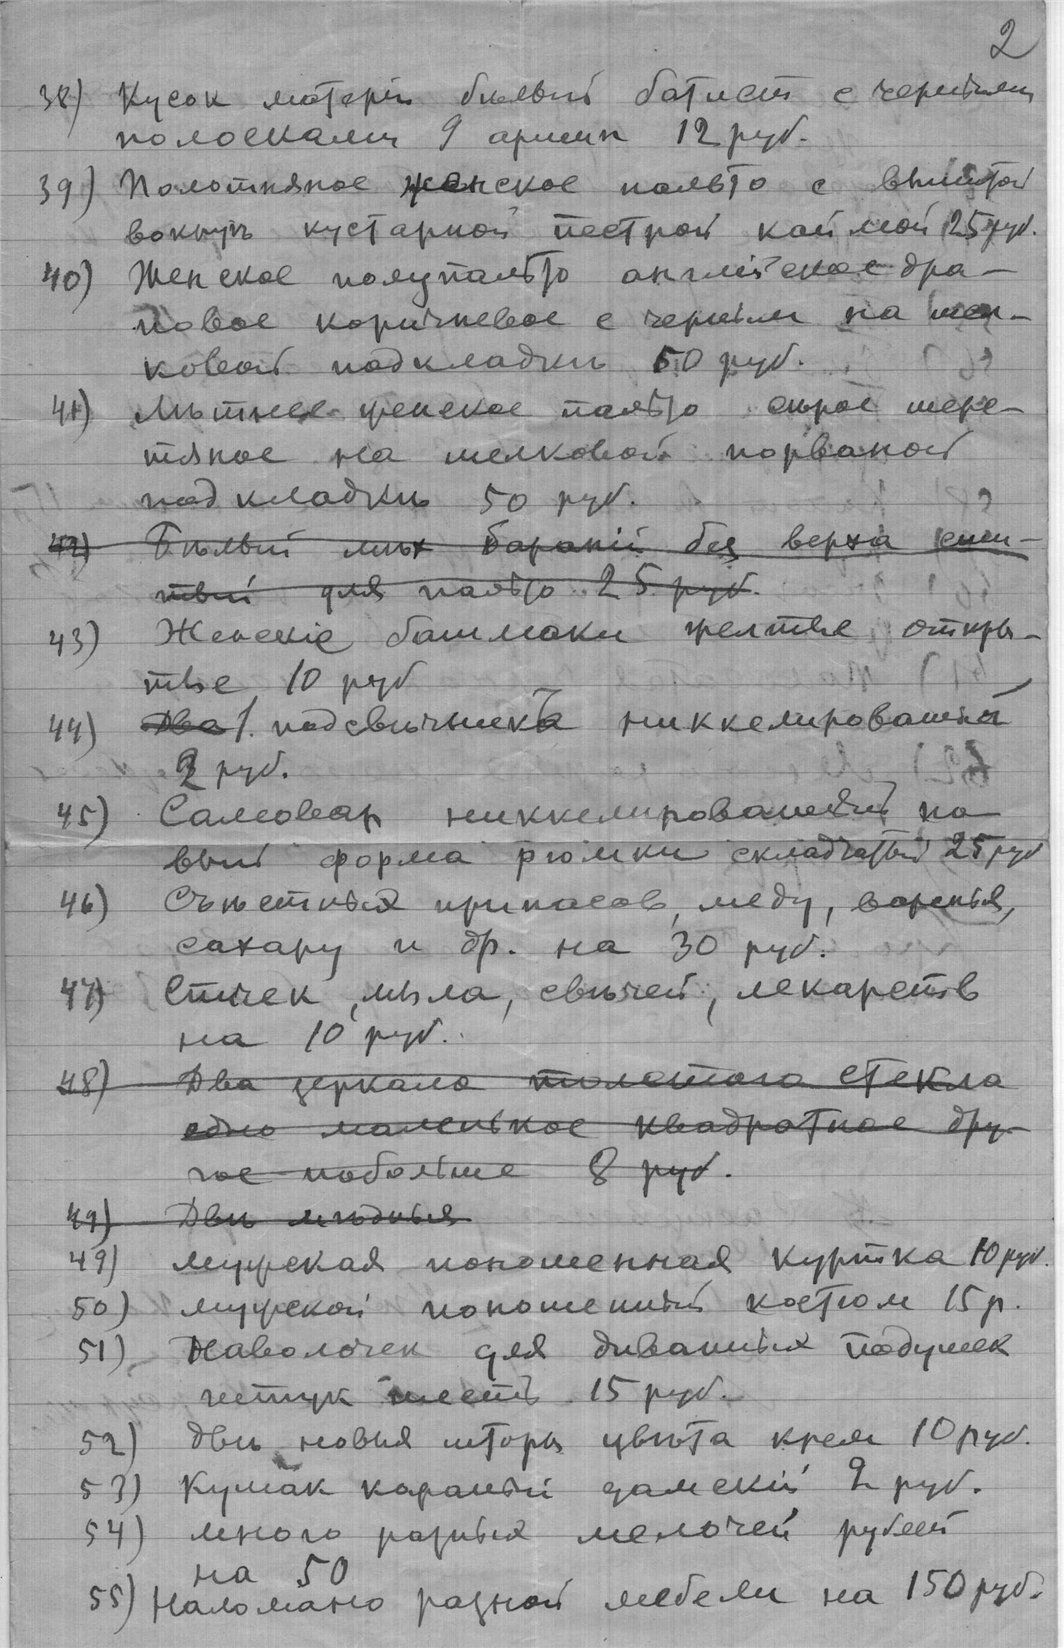 2
38) Кусок матеріи бѣлый батист с черными
полосками 9 аршин 12 руб.
39) Полотняное женское пальто с вышитой
вокругъ кустарной пестрой каймой 25 руб.
40) Женское полупальто англійское дра-
повое коричневое с черным на шел-
ковой подкладкѣ 50 руб.
41) Лѣтнее женское пальто сѣрое шерс-
тяное на шелковой порваной
подкладкѣ 50 руб.
42) Бѣлый мѣх бараній без верха сши-
тый для пальто 25 руб.
43) Женскіе башмаки желтые откры-
тые 10 руб
44) Два 1 подсвѣчника никкелированный
2 руб.
45) Самовар никкелированный но-
вый форма рюмки складчатый 25 руб
46) Съѣстныя припасов, меду, варенья,
сахару и др. на 30 руб.
47) Спичек, мыла, свѣчей, лекарств
на 10 руб.
48) Два зеркала толстого стекла
одно маленькое квадратное дру-
гое побольше 8 руб.
49) Двѣ мѣдныя
49) мужская поношенная куртка 10 руб.
50) мужской поношенный костюм 15 р.
51) Наволочек для диванных подушек
штук шесть 15 руб.
52) двѣ новыя шторы цвѣта крем 10 руб.
53) Кушак кораный дамскій 2 руб.
54) много разных мелочей рублей
на 50
55) Наломано разной мебели на 150 руб.